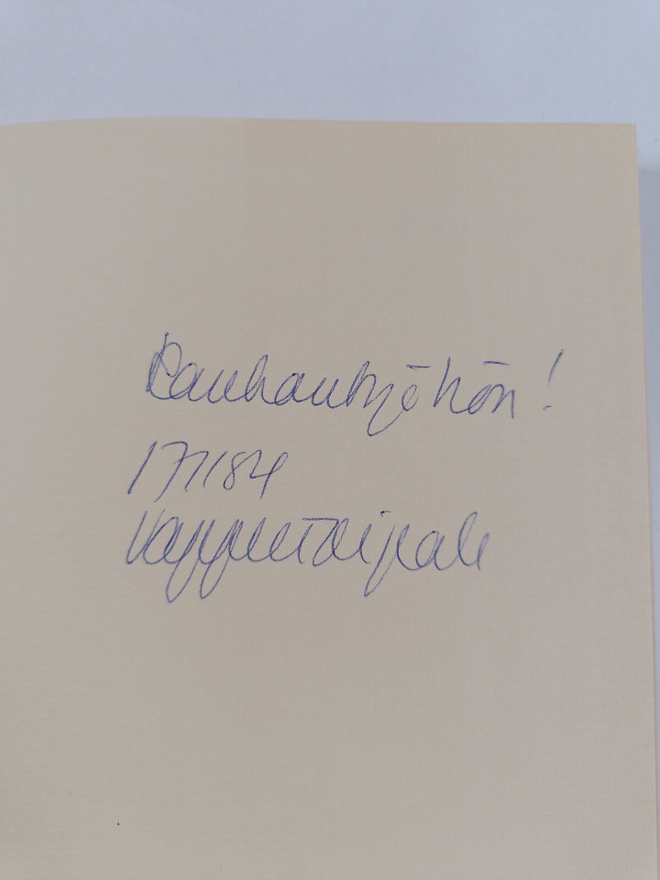 Rauhantyöhön!
17/184
Vappu Taipale